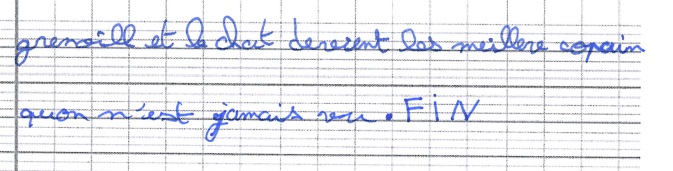 grenoill et le chat deverent les meillere copain
quon n'est jamais vu. FIN